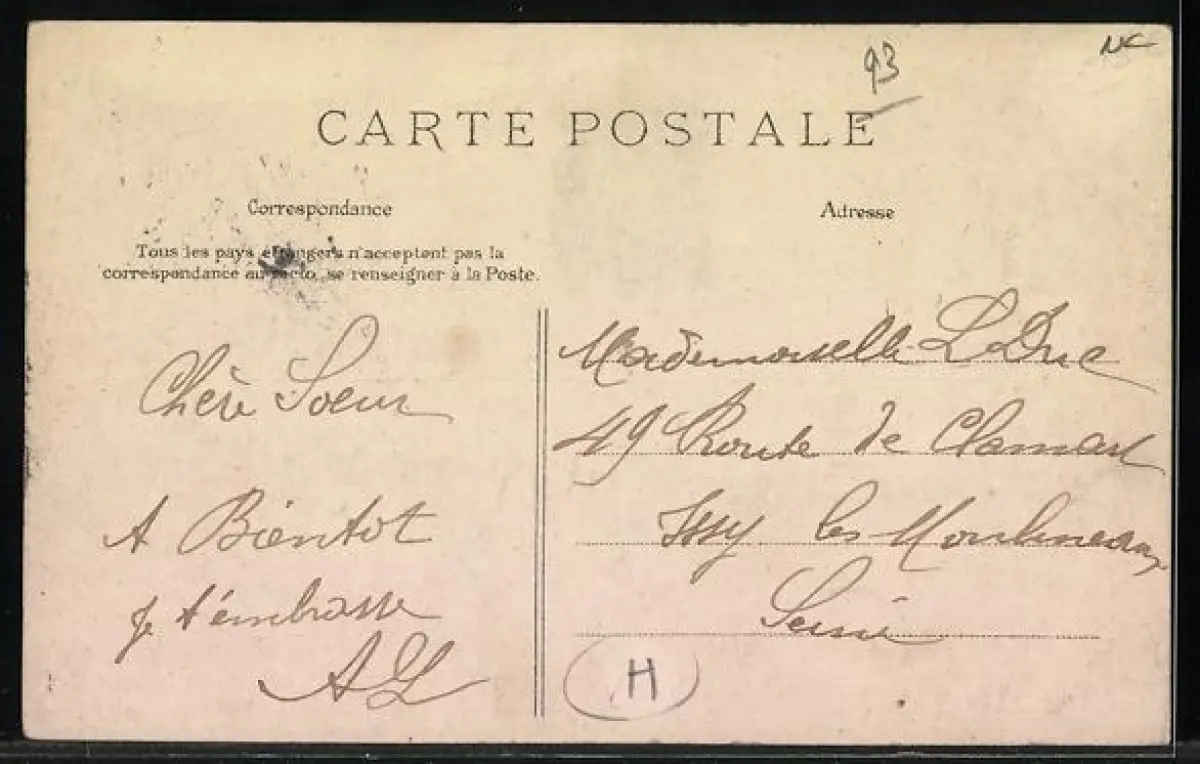 93
NC
CARTE POSTALE
Correspondance
Tous les pays étrangers n'acceptent pas la
correspondance au recto, se renseigner à la Poste.
Chère Soeur
A Bientot
je t'embrasse
AL
Adresse
Mademoiselle L Duc
49 Route de Clamart
Issy les Moulineaux
Seine
H